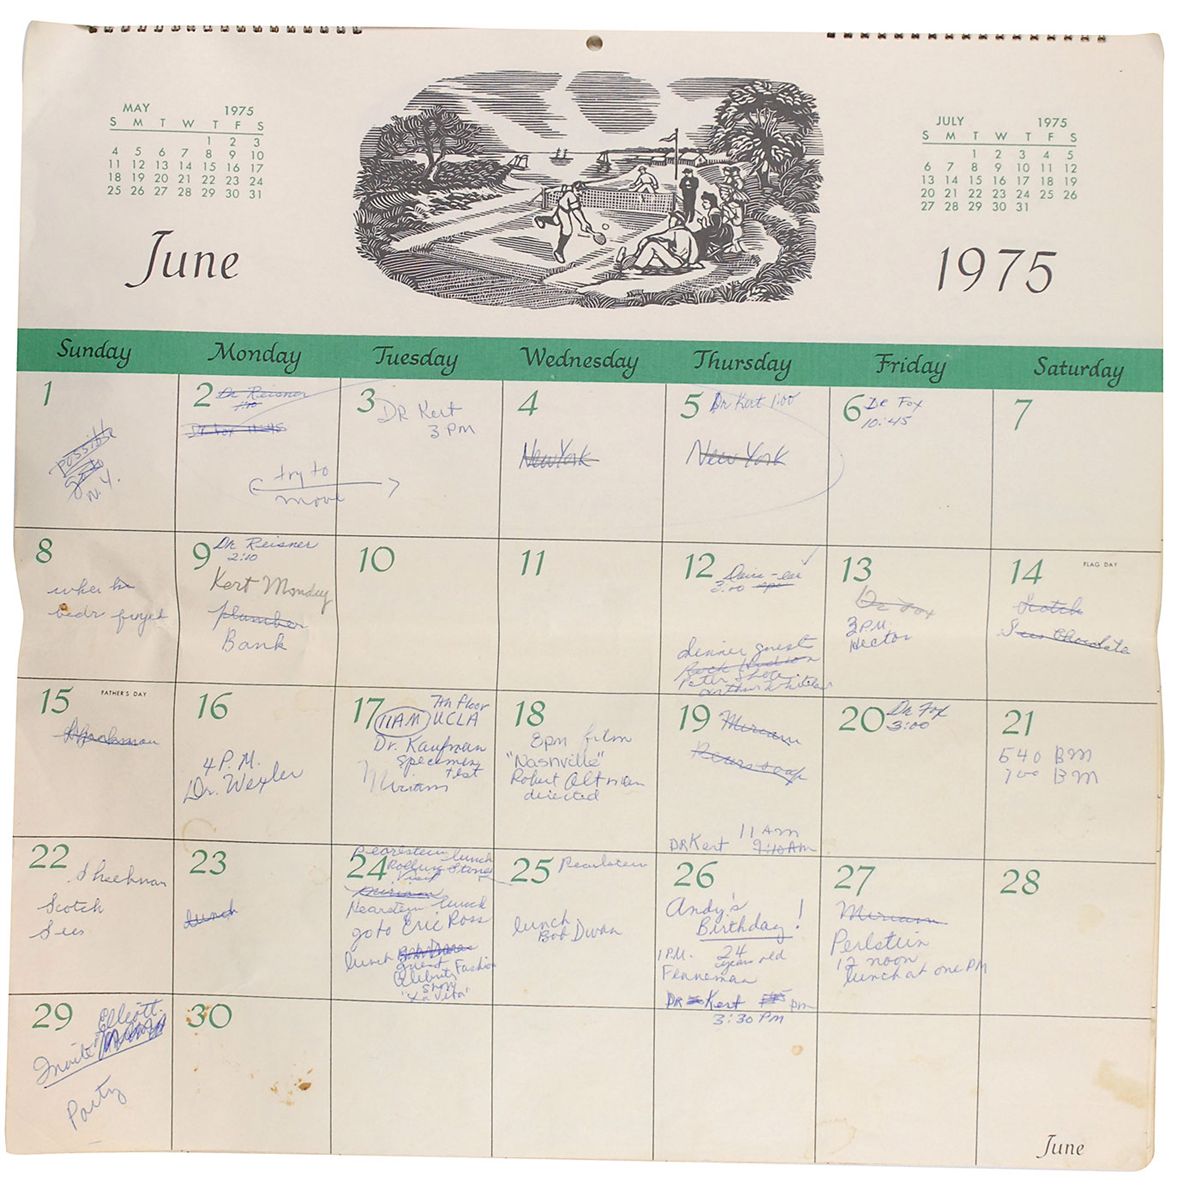 MAY 1975
S M T W T F S
1 2 3
4 5 6 7 8 9 10
11 12 13 14 15 16 17
18 19 20 21 22 23 24
25 26 27 28 29 30 31
JULY 1975
S M T W T F S
1 2 3 4 5
6 7 8 9 10 11 12
13 14 15 16 17 18 19
20 21 22 23 24 25 26
27 28 29 30 31
June
1975
Sunday Monday Tuesday Wednesday Thursday Friday Saturday
1
possible
go to
N.Y.
2 Dr Reisner
1:30
Dr Fox 11:45
try to
move
3 DR Kert
3 PM
4
New York
5 Dr Kert 1:00
New York
6 Dr Fox
10:45
7
8
9 Dr Reisner
2:10
Kert Monday
plumber
Bank
10
11
12
3:00
dinner guest
Rock Hudson
Peter Shore
Arthur Whitelaw
13
Dr Fox
3 P.M.
Hector
14 FLAG DAY
Scotch
Sees Chocolate
15 FATHER'S DAY
16
4 P.M.
Dr. Wexler
17 7th floor
11 AM UCLA
Dr. Kaufman
specimen
test
Miriam
18
8pm film
"Nashville"
Robert Altman
directed
19 Miriam
11 AM
DR Kert 9:10 AM
20 Dr Fox
3:00
21
540 BM
700 BM
22 Sheehman
Scotch
Sees
23
lunch
24 Pearlstein lunch
Rolling Stones
Miriam
Pearstein lunch
go to Eric Ross
lunch Bob Dwan
guest
Celebrity Fashion
show
"La Vita"
25 Pearlstein
lunch
Bob Dwan
26
Andy's
Birthday!
1 P.M. 24
years old
Fenneman
DR Kert pm
3:30 PM
27
Miriam
Perlstein
12 noon
lunch at one PM
28
29 Elliott
Invite
Party
30
June